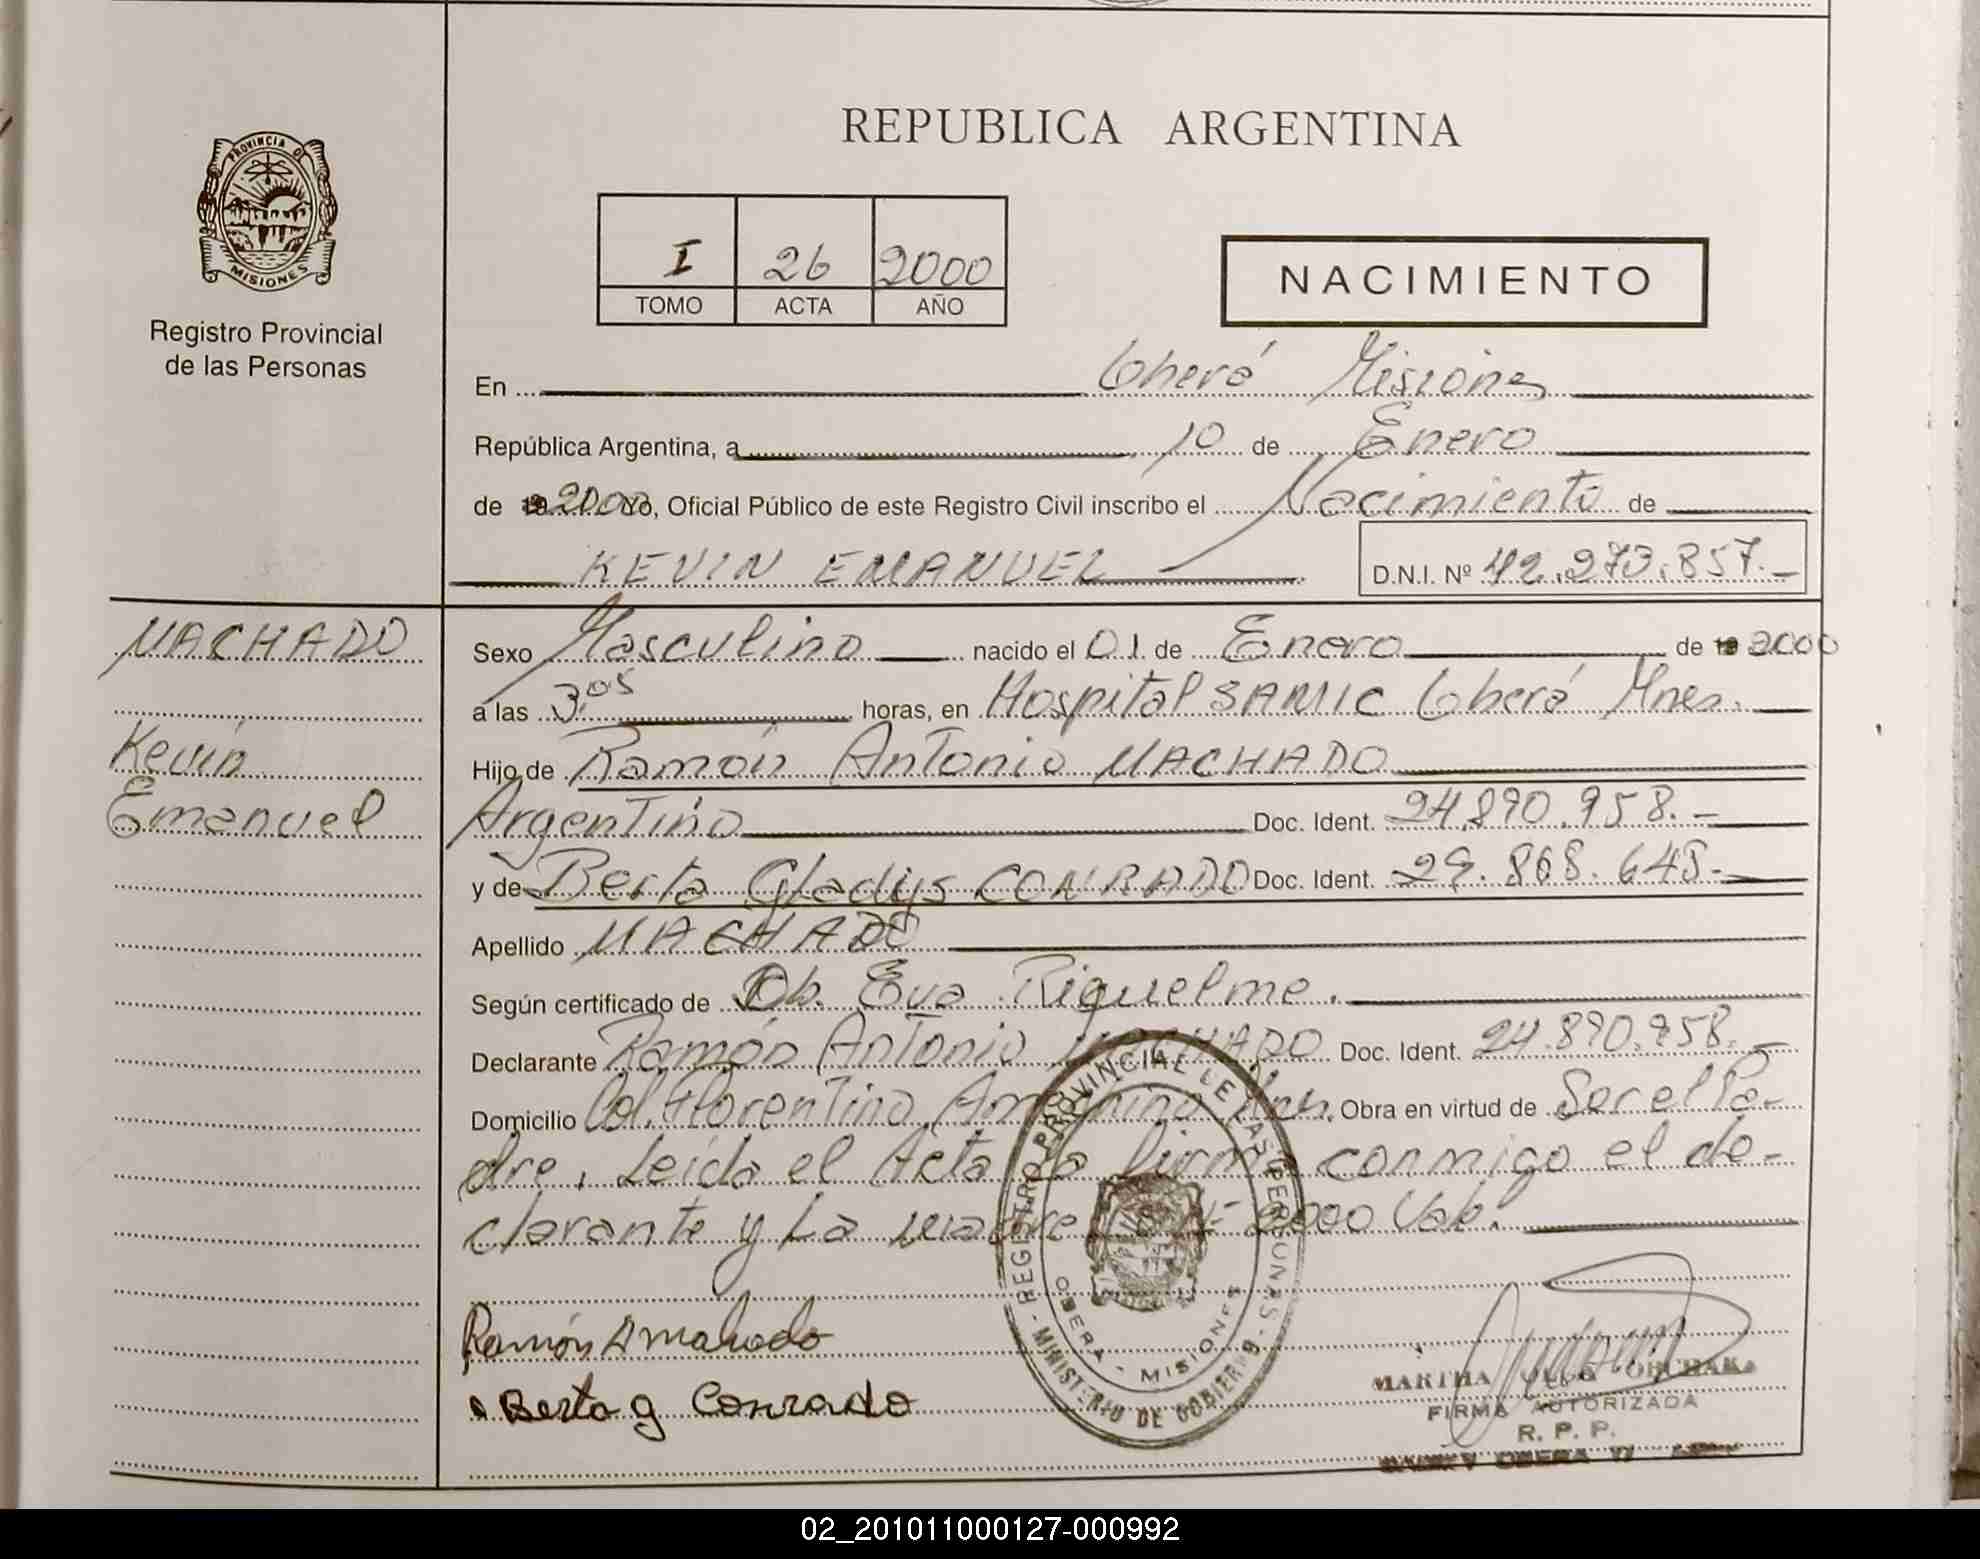 REPUBLICA ARGENTINA
PROVINCIA DE
MISIONES
Registro Provincial
de las Personas
I 26 2000
TOMO ACTA AÑO
NACIMIENTO
En ... Oberá Misiones
República Argentina, a 10 de Enero
de 19 2000 Yo, Oficial Público de este Registro Civil inscribo el Nacimiento de
KEVIN EMANUEL D.N.I. Nº 42.273.857.-
MACHADO
Kevin
Emanuel
Sexo Masculino nacido el 01 de Enero de 19 2000
a las 3:05 horas, en Hospital SAMIC Oberá Mnes.
Hijo de Ramón Antonio MACHADO
Argentino Doc. Ident. 24.890.958.-
y de Berta Gladys CONRADO Doc. Ident. 29.868.648.-
Apellido MACHADO
Según certificado de Ob. Eva Riquelme.
Declarante Ramón Antonio MACHADO Doc. Ident. 24.890.958.-
Domicilio Col. Florentino Ameghino Mnes. Obra en virtud de Ser el Pa-
dre. Leída el Acta la firma conmigo el de-
clarante y La madre 2000 Vale.
Ramón A machado
Berta g Conrado
REGISTRO PROVINCIAL DE LAS PERSONAS - MINISTERIO DE GOBIERNO
OBERA - MISIONES
MARTHA OLGA
FIRMA AUTORIZADA
R. P. P.
OBERA
02_201011000127-000992